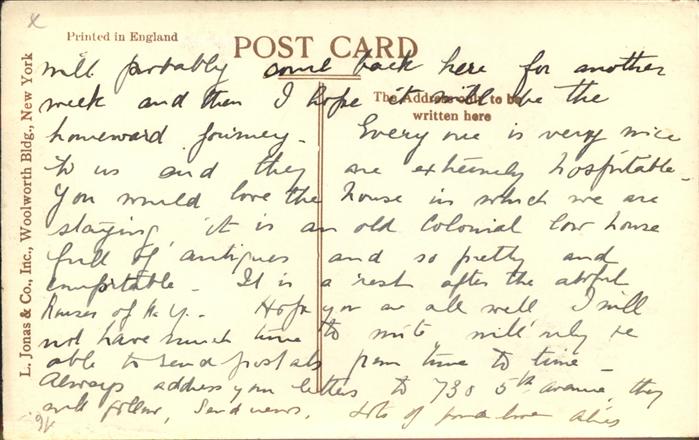 Printed in England
POST CARD
The Address only to be
written here
L. Jonas & Co., Inc., Woolworth Bldg., New York
will probably come back here for another
week and then I hope it will be the
homeward journey. Everyone is very nice
to us and they are extremely hospitable.
You would love the house in which we are
staying, it is an old Colonial low house
full of antiques and so pretty and
comfortable. It is a rest after the awful
houses of N.Y. Hope you are all well I will
not have much time to write will only be
able to send postals from time to time.
Always address your letters to 730 5th avenue, they
will follow, Send news. Lots of love